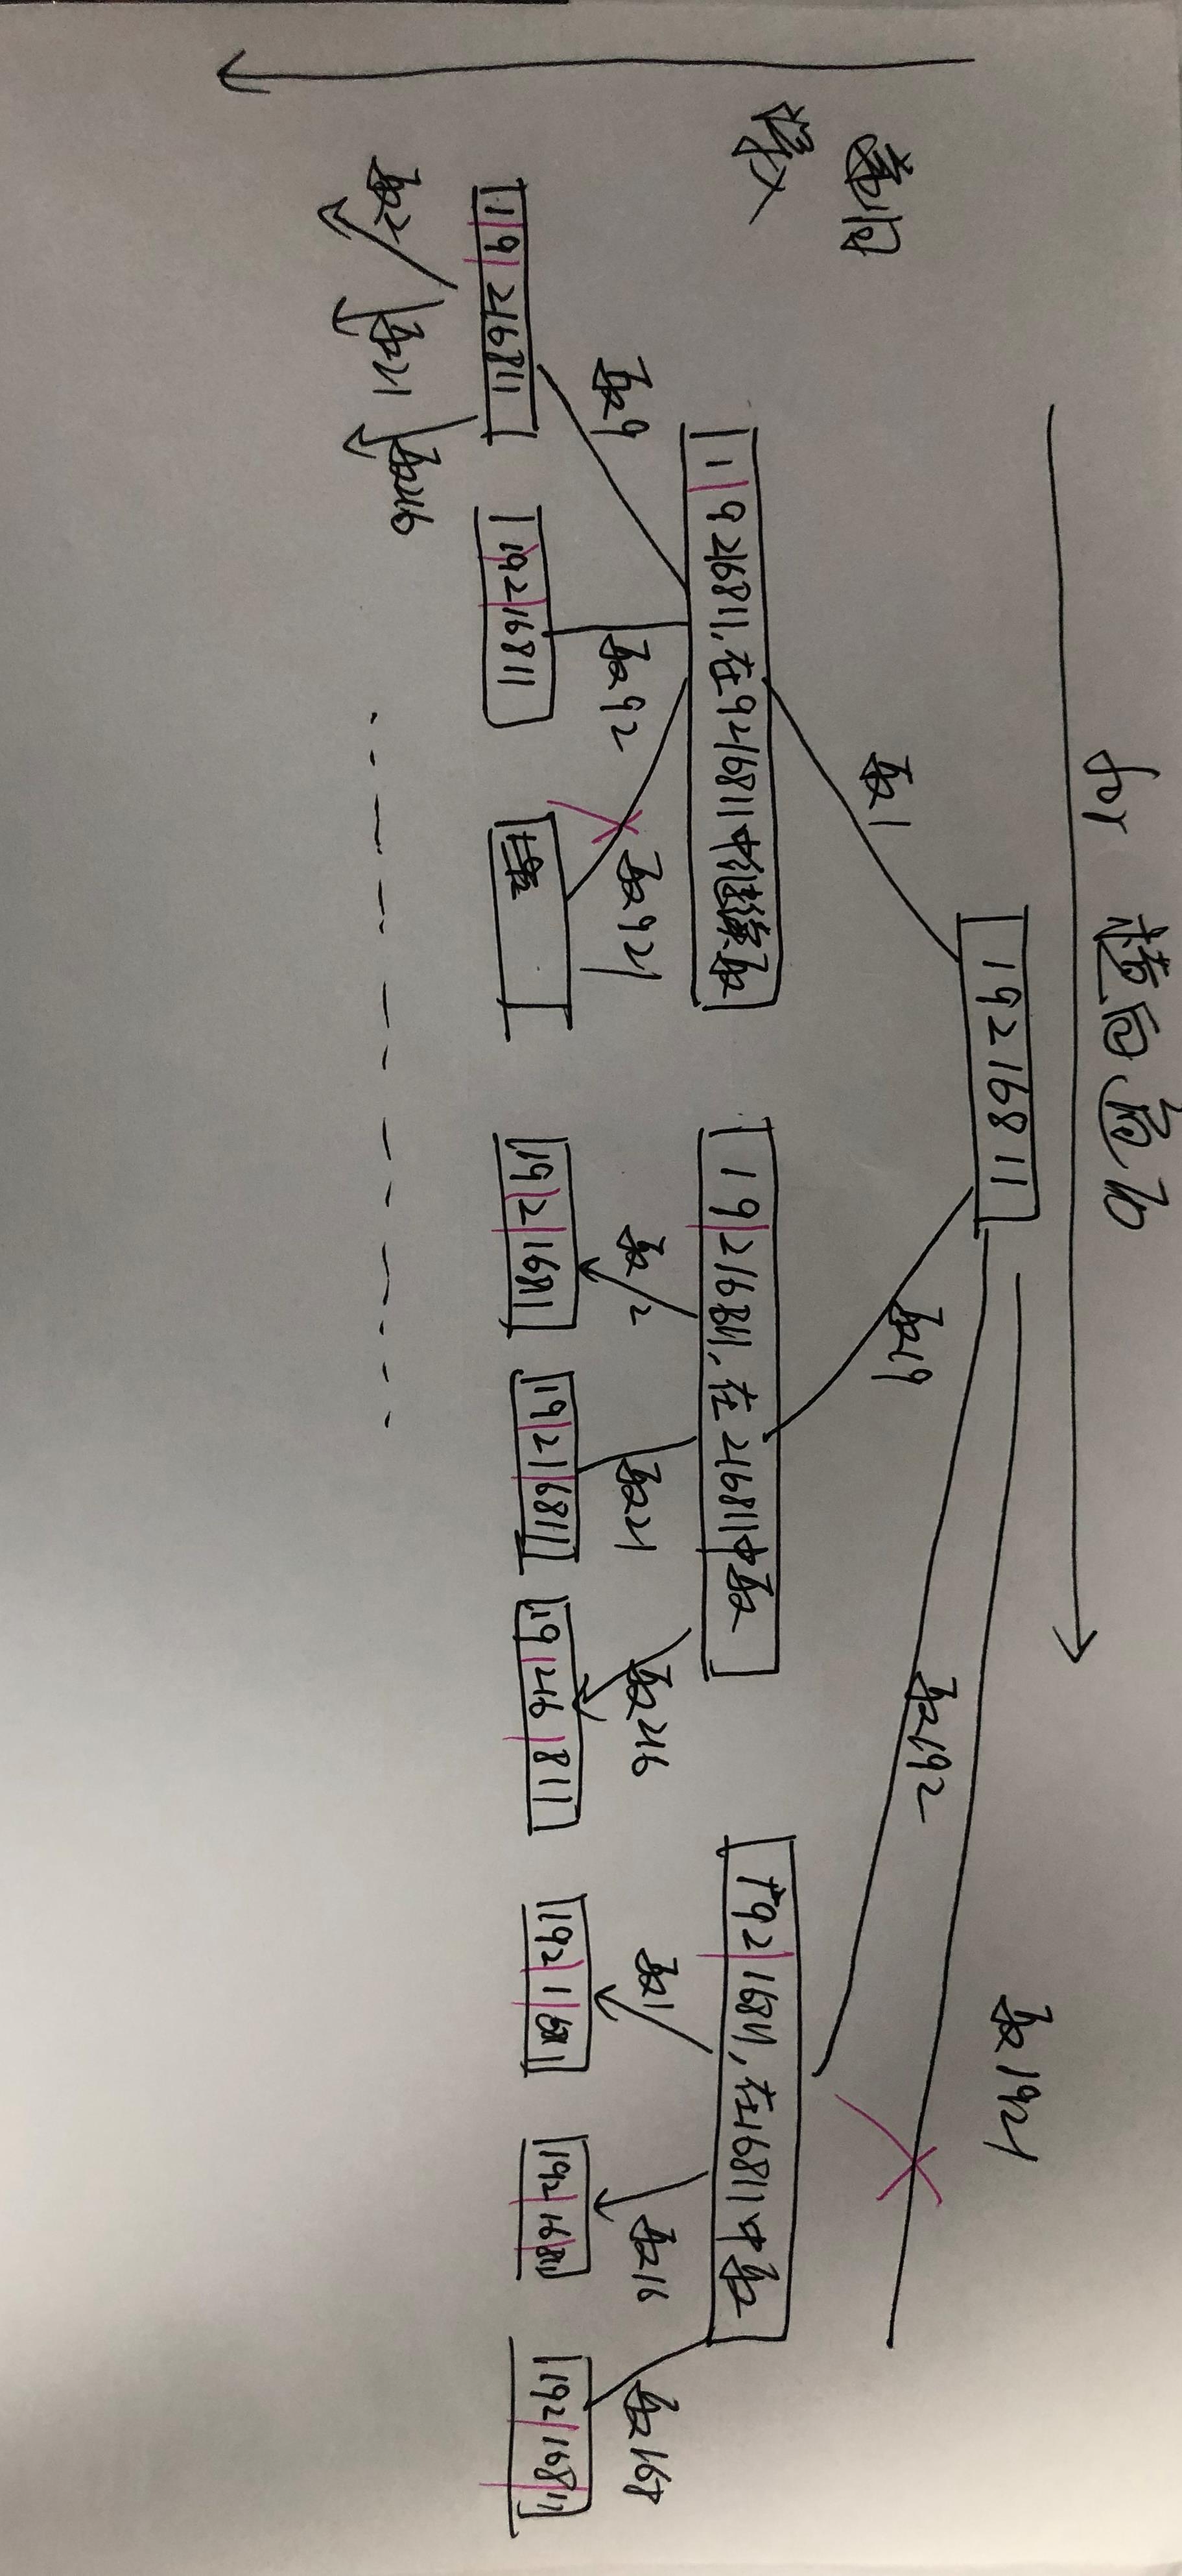 for 横向遍历
19216811
取1921
取1
取19
取192
递归
深入
1|9216811,在9216811中继续取
19|216811,在216811中取
192|16811,在16811中取
取9
取92
取921
取2
取21
取216
取1
取16
取168
1|9|216811
1|92|16811
19|2|16811
19|21|6811
19|216|811
192|1|6811
192|16|811
192|168|11
取2
取21
取216